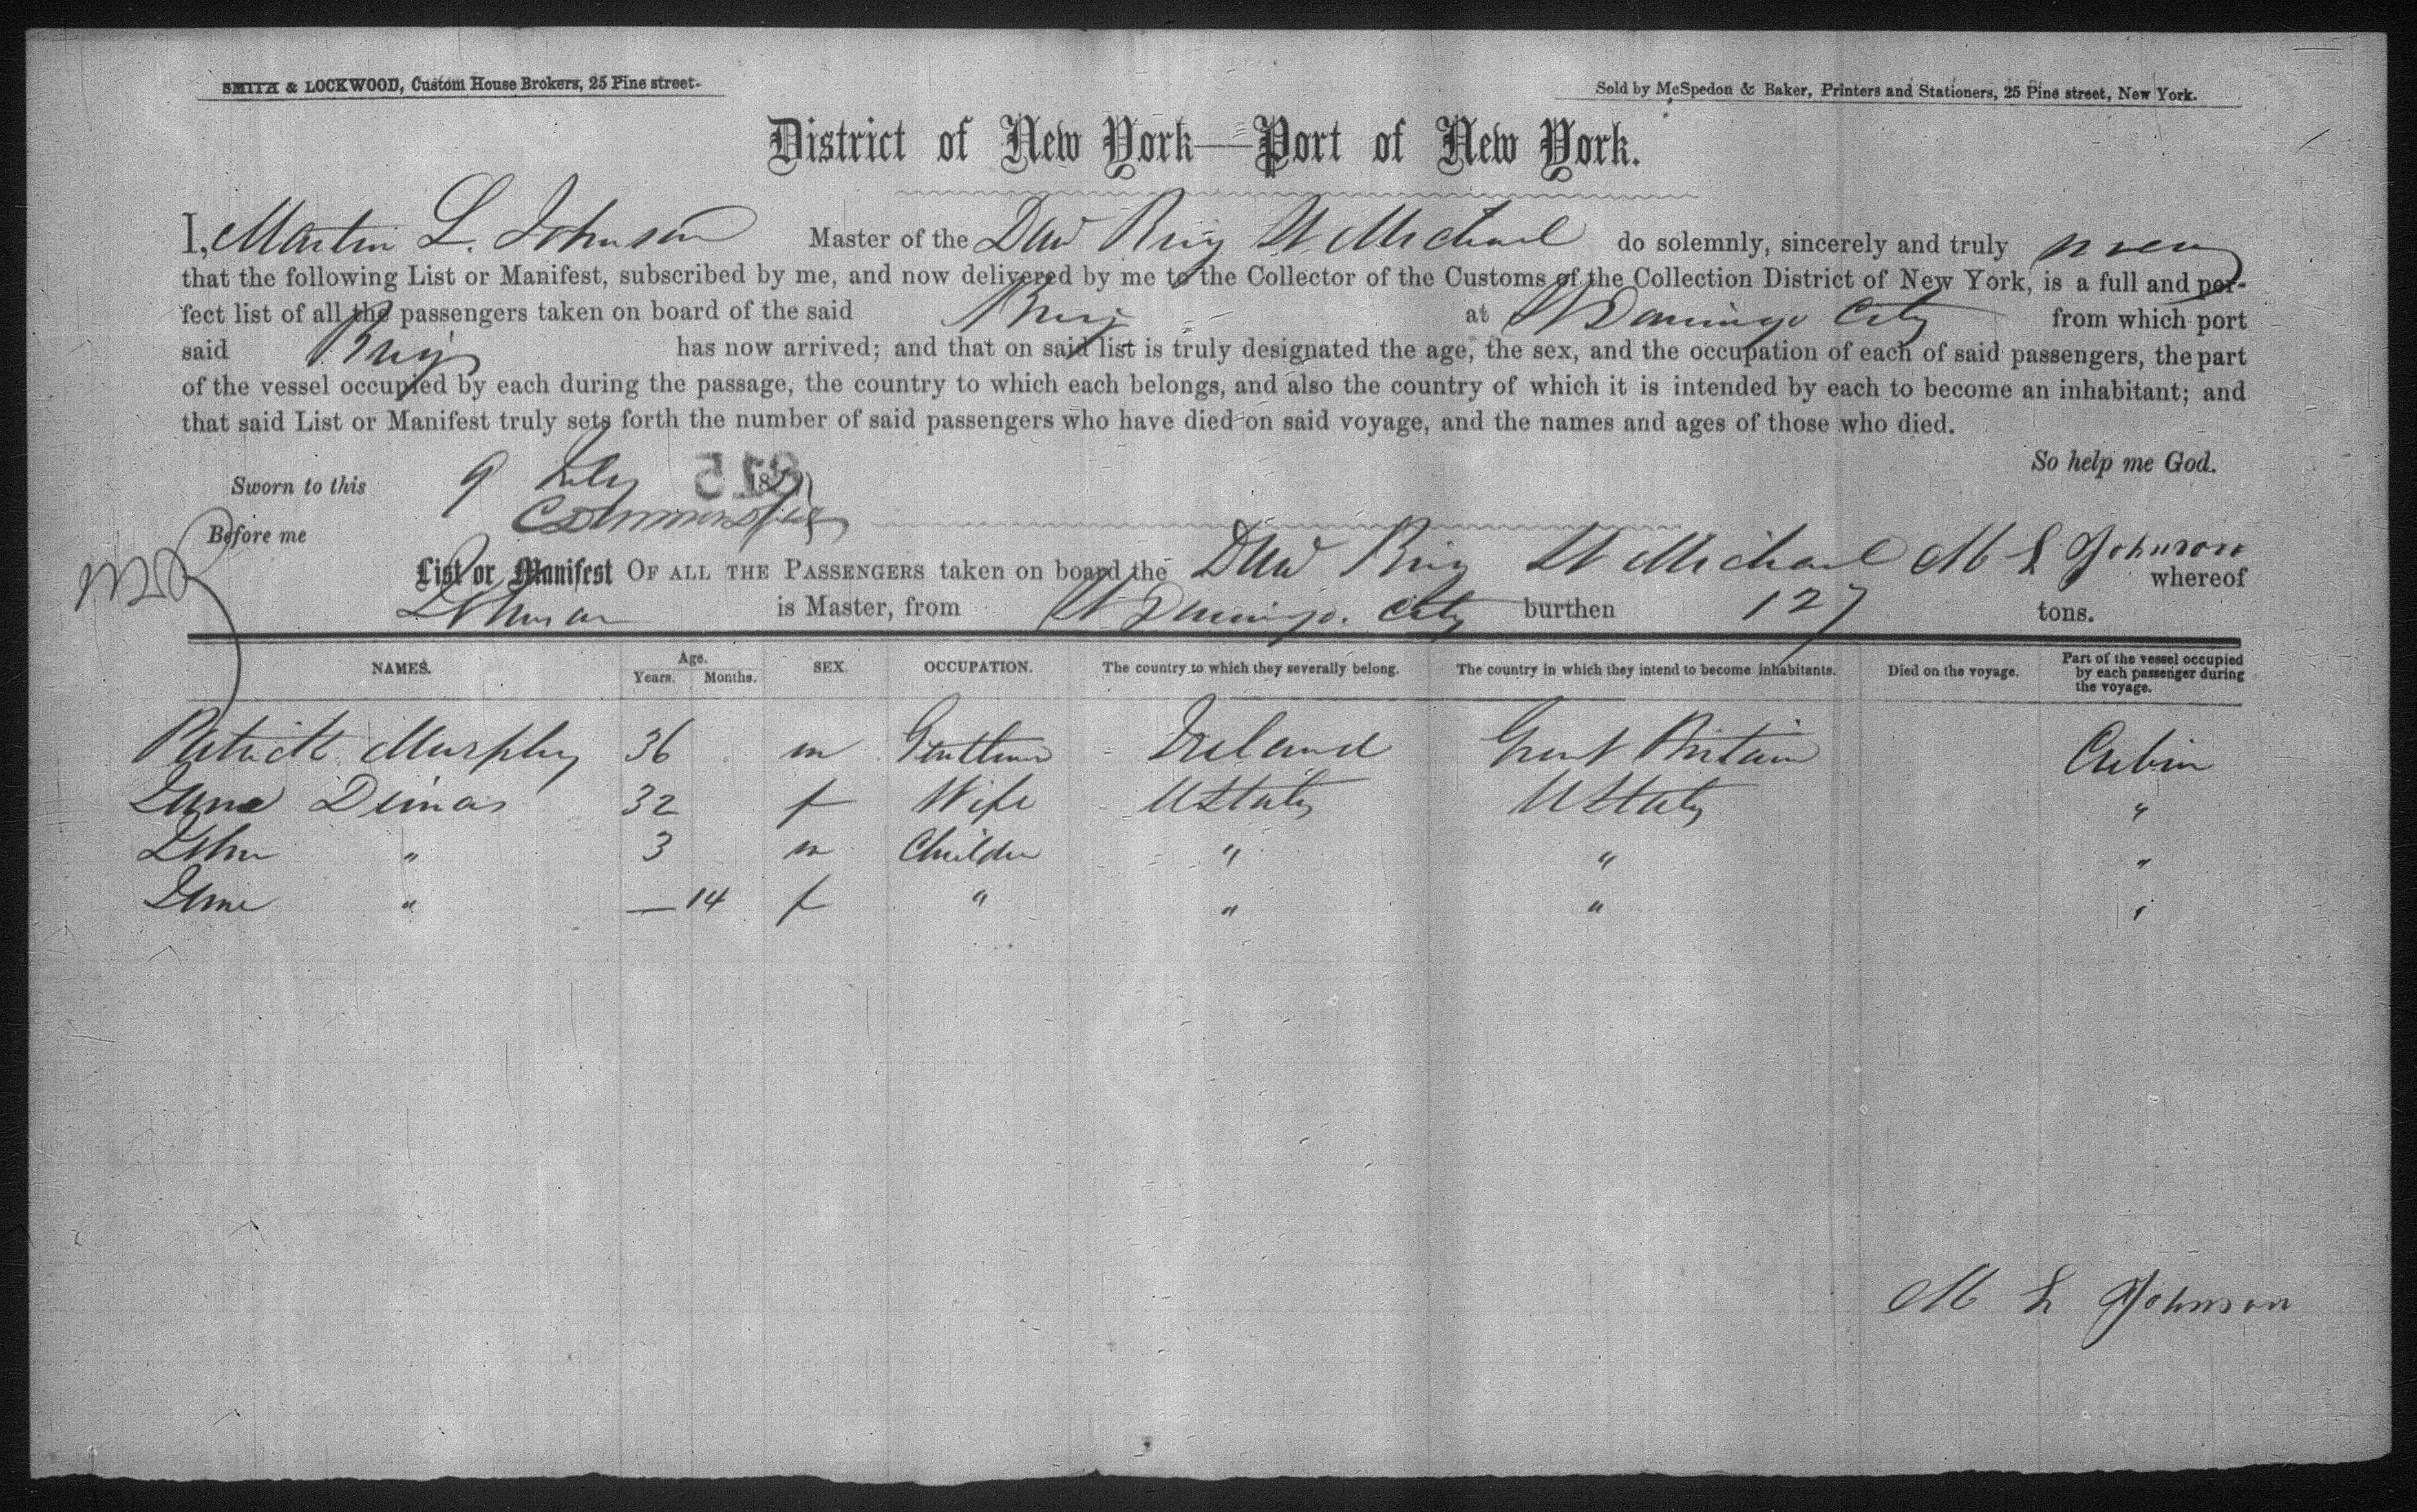 SMITH & LOCKWOOD, Custom House Brokers, 25 Pine street.
Sold by McSpedon & Baker, Printers and Stationers, 25 Pine street, New York.
District of New York—Port of New York.
I, Martin L. Johnson Master of the Dan Brig St Michael do solemnly, sincerely and truly swear
that the following List or Manifest, subscribed by me, and now delivered by me to the Collector of the Customs of the Collection District of New York, is a full and per-
fect list of all the passengers taken on board of the said Brig at St Domingo City from which port
said Brig has now arrived; and that on said list is truly designated the age, the sex, and the occupation of each of said passengers, the part
of the vessel occupied by each during the passage, the country to which each belongs, and also the country of which it is intended by each to become an inhabitant; and
that said List or Manifest truly sets forth the number of said passengers who have died on said voyage, and the names and ages of those who died.
So help me God.
Sworn to this 9 July 185
815
Before me
List or Manifest OF ALL THE PASSENGERS taken on board the Dan Brig St Michael M L Johnson whereof
Johnson is Master, from St Domingo City burthen 127 tons.
NAMES. Age. Years. Months. SEX. OCCUPATION. The country to which they severally belong. The country in which they intend to become inhabitants. Died on the voyage. Part of the vessel occupied by each passenger during the voyage.
Patrick Murphy 36 m Gentleman Ireland Great Britain Cabin
Jane Dimas 32 f Wife U States U States "
John " 3 m Children " " "
Jane " — 14 f " " " "
M L Johnson